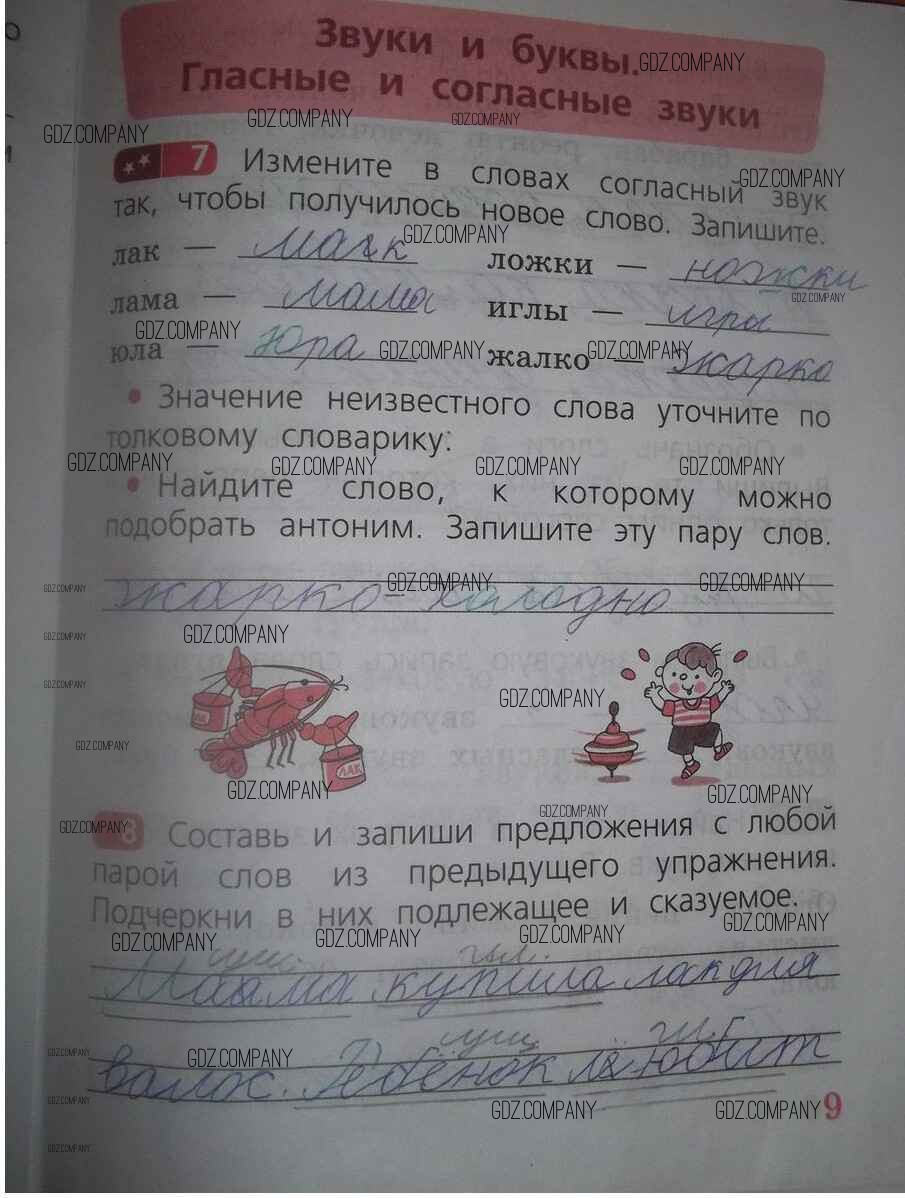 Звуки и буквы.
Гласные и согласные звуки
7 Измените в словах согласный звук
так, чтобы получилось новое слово. Запишите.
лак — ложки — ножки
лама — мама иглы — игры
юла — Юра жалко — жарко
• Значение неизвестного слова уточните по
толковому словарику:
• Найдите слово, к которому можно
подобрать антоним. Запишите эту пару слов.
жарко - холодно
ЛАК
ЛАК
8 Составь и запиши предложения с любой
парой слов из предыдущего упражнения.
Подчеркни в них подлежащее и сказуемое.
сущ. гл.
Маама купила лак для
сущ гл.
валос. Ребёнок любит
9
GDZ.COMPANY